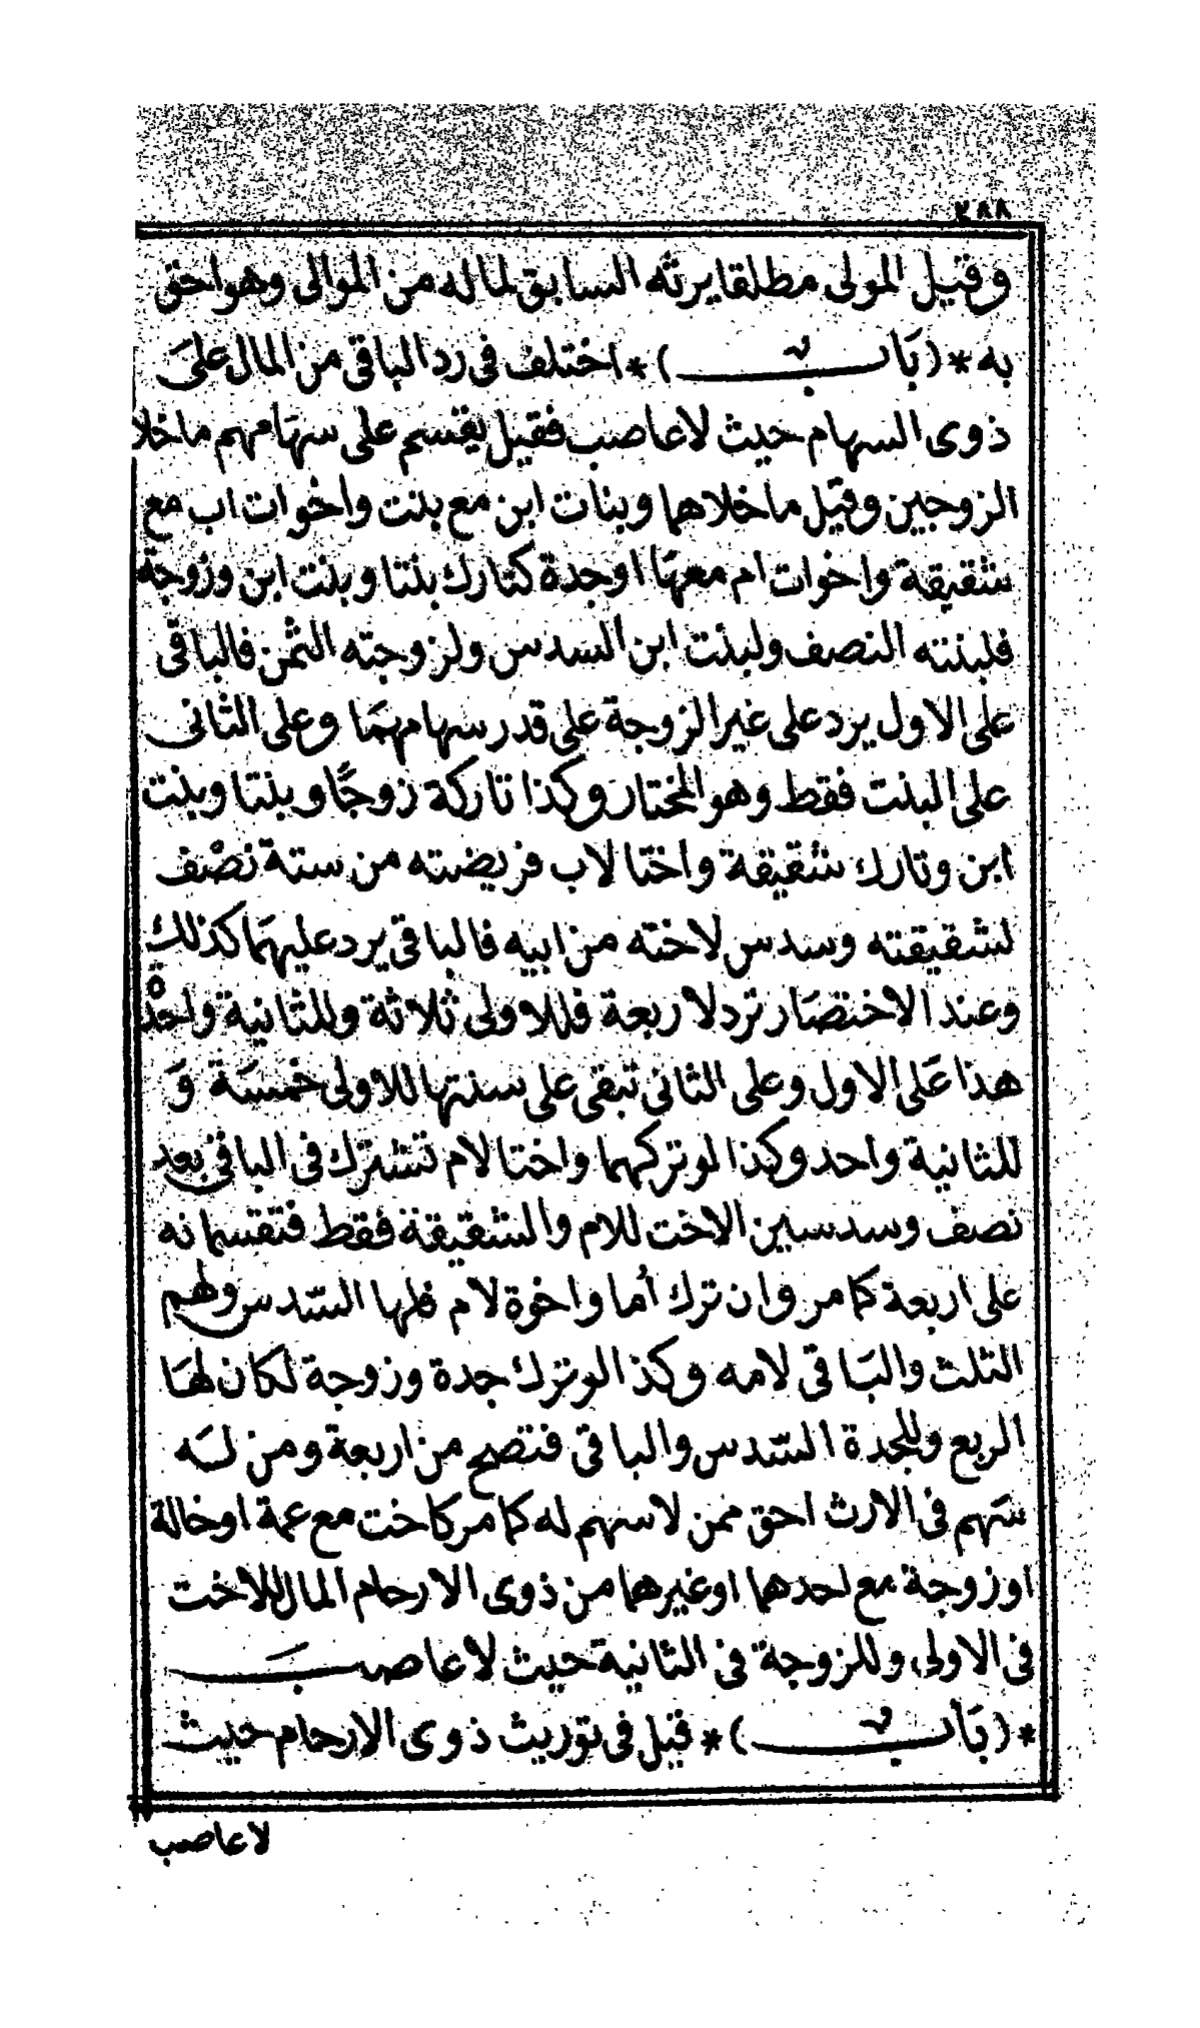 ٢٨٨
وقيل المولى مطلقا يرثه السابق لماله من الموالى وهو احق
به *(بَاب)* اختلف فى رد الباقى من المال علىَ
ذوى السهام حيث لاعاصب فقيل يقسم على سهَامهم ماخلا
الزوجين وقيل ماخلاهما وبنات ابن مع بنت واخوات اب مع
شقيقة واخوات ام معهَا اوجدة كتارك بنتا وبنت ابن وزوجة
فلبنته النصف ولبنت ابن السدس ولزوجته الثمن فالباقى
على الاول يرد على غير الزوجة على قدر سهامهمَا وعلى الثانى
على البنت فقط وهو المختار وكذا تاركة زوجًا وبنتا وبنت
ابن وتارك شقيقة واختا لاب فريضته من ستة نصْف
لشقيقته وسدس لاخته من ابيه فالباقى يرد عليهمَا كذلك
وعند الاختصَار ترد لاربعة فللاولى ثلاثة وللثانية واحدة
هذا عَلى الاول وعلى الثانى تبقى على ستتها للاولى خمسَة وَ
للثانية واحد وكذا لو تركهما واختا لام تشترك فى الباقى بعد
نصف وسدسين الاخت للام والشقيقة فقط فتقسمانه
على اربعة كما مر وان ترك أما واخوة لام فلها السّدس ولهم
الثلث والبَاقى لامه وكذا لو ترك جدة وزوجة لكان لهَا
الربع وللجدة السّدس والباقى فتصح من اربعة ومن لَه
سَهم فى الارث احق ممن لاسهم له كما مر كاخت مع عمة اوخالة
اوزوجة مع احدهما اوغيرهما من ذوى الارحام المال للاخت
فى الاولى، وللزوجة فى الثانية حيث لاعاصبَ
*(بَاب)* قيل فى توريث ذوى الارحام حيث
لاعاصب